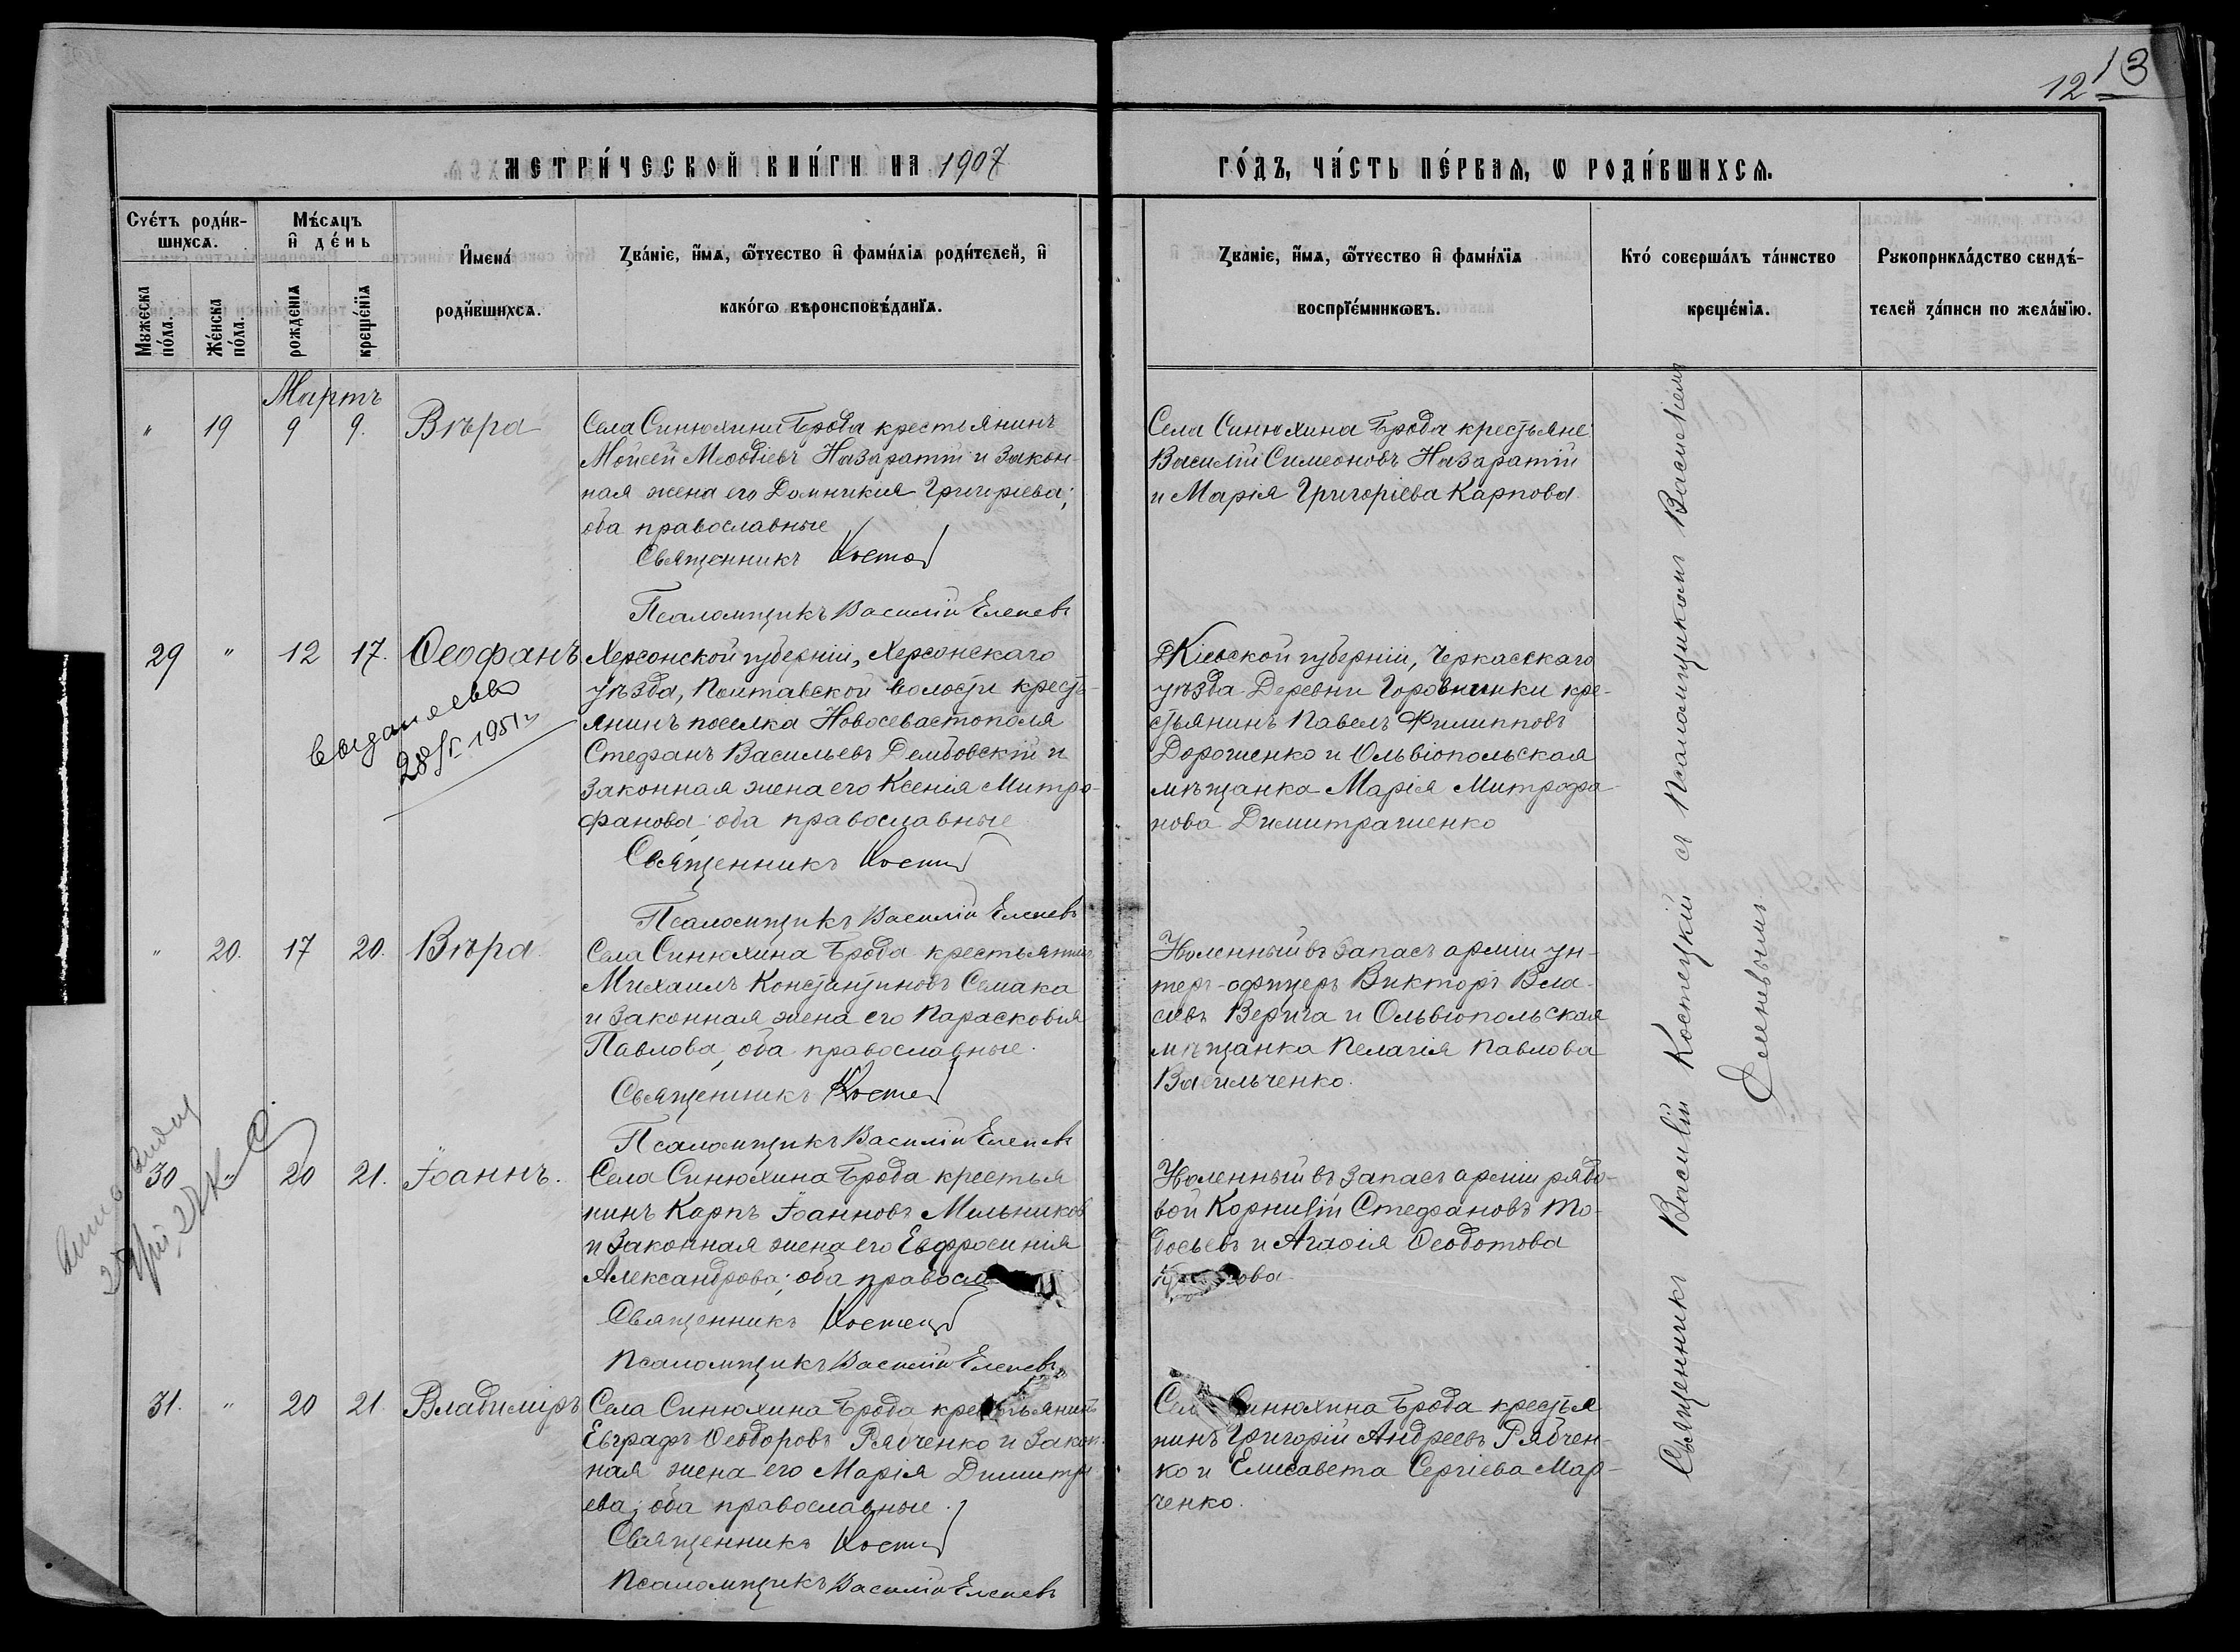 12 13
МЕТРИ́ЧЕСКОЙ КНИ́ГИ НА 1907
ГО́ДЪ, ЧА́СТЬ ПЕ́РВАѦ, Ѡ РОДИ́ВШИХСѦ.
Сче́тъ роди́в-
шихсѧ.
Мꙋжеска по́ла.
Же́нска по́ла.
Мѣ́сѧцъ
и҆ де́нь
рожде́нїѧ
креще́нїѧ
И҆мена́
роди́вшихсѧ.
Зва́нїе, и҆́мѧ, ѻ҆́тчество и҆ фами́лїѧ роди́телей, и҆
како́гѡ вѣроисповѣ́данїѧ.
Зва́нїе, и҆́мѧ, ѻ҆́тчество и҆ фами́лїѧ
воспрїе́мникѡвъ.
Кто́ соверша́лъ та́инство
креще́нїѧ.
Рꙋкоприкла́дство свидѣ́-
телей за́писи по жела́нїю.
Мартъ
" 19 9 9. Вѣра
Села Синюхина Брода крестьянинъ
Мойсей Меѳодіевъ Назаратій и закон-
ная жена его Домникия Григоріева;
оба православные
Священникъ
Псаломщикъ Василій Еленевъ
Села Синюхина Брода крестьяне
Василій Симеоновъ Назаратій
и Марія Григоріева Карпова
29 " 12 17. Ѳеофанъ
28/ 1951 г
Херсонской губерніи, Херсонскаго
уѣзда, Полтавской волости кресть-
янинъ поселка Новосевастополя
Стефанъ Васильевъ Дембовскій и
законная жена его Ксенія Митро-
фанова; оба православные
Священникъ
Псаломщикъ Василій Еленевъ
Кіевской губерніи, Черкасскаго
уѣзда Деревни кре-
стьянинъ Павелъ Филипповъ
Дорошенко и Ольвіопольская
мѣщанка Марія Митрофа-
нова Димитрашенко
" 20. 17 20. Вѣра
Села Синюхина Брода крестьянинъ
Михаилъ Константиновъ Семака
и законная жена его Парасковія
Павлова, оба православные.
Священникъ
Псаломщикъ Василій Еленевъ
въ запасъ арміи ун-
теръ-офицеръ Викторъ Вла-
сивъ Верига и Ольвіопольская
мѣщанка Пелагія Павлова
Васильченко.
30 " 20 21. Іоаннъ.
Села Синюхина Брода крестья
нинъ Карпъ Іоанновъ Мельников
и законная жена его Евфросинія
Александрова; оба правосл
Священникъ
Псаломщикъ Василій Еленевъ
въ запасъ арміи рядо-
вой Корнилій Стефановъ
и Агаѳія Ѳеодотова
31. " 20 21. Владиміръ
Села Синюхина Брода крестьянинъ
Евграфъ Ѳеодоровъ Рябченко и закон
ная жена его Марія Димитрі
ева; оба православные.
Священникъ
Псаломщикъ Василій Еленевъ
Села Синюхина Брода крестья
нинъ Григорій Андреевъ Рябчен-
ко и Елисавета Сергіева Мар-
ченко.
Священникъ Василій Костецкій съ Псаломщикомъ Василіемъ
Еленевымъ